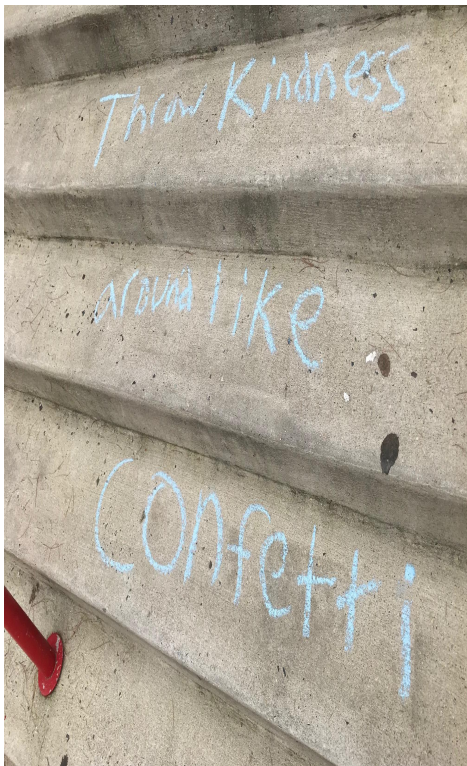 Throw Kindness
around like
Confetti